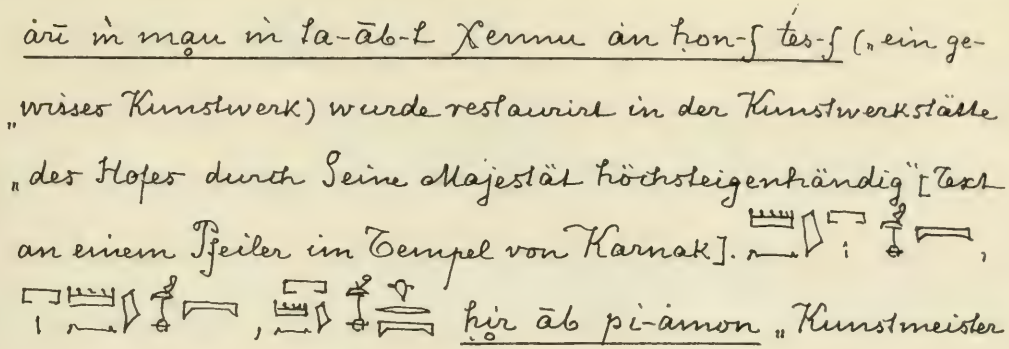 ari m mau m ta-āb-t χennu an ḥon-f tes-f („ein ge-
„wisses Kunstwerk) wurde restaurirt in der Kunstwerkstätte
„des Hofes durch Seine Majestät höchsteigenhändig“ [Text
an einem Pfeiler im Tempel von Karnak].
ḥir āb pi-amon „Kunstmeister